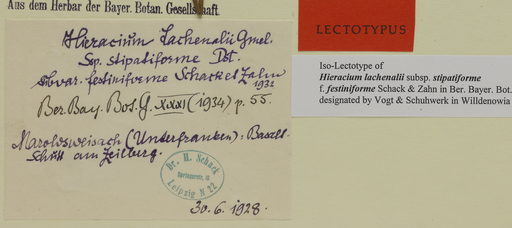 Aus dem Herbar der Bayer. Botan. Gesellschaft.
Hieracium Lachenalii Gmel.
Ssp. stipatiforme Dst.
subvar. festiniforme Schack et Zahn
1932
Ber. Bay. Bot. G. XXXI (1934) p. 55.
Maroldsweisach (Unterfranken): Basalt-
schutt am Zeilberg.
Dr. H. Schack
Leipzig N 22
30. 6. 1928.
LECTOTYPUS
Iso-Lectotype of
Hieracium lachenalii subsp. stipatiforme
f. festiniforme Schack & Zahn in Ber. Bayer. Bot.
designated by Vogt & Schuhwerk in Willdenowia